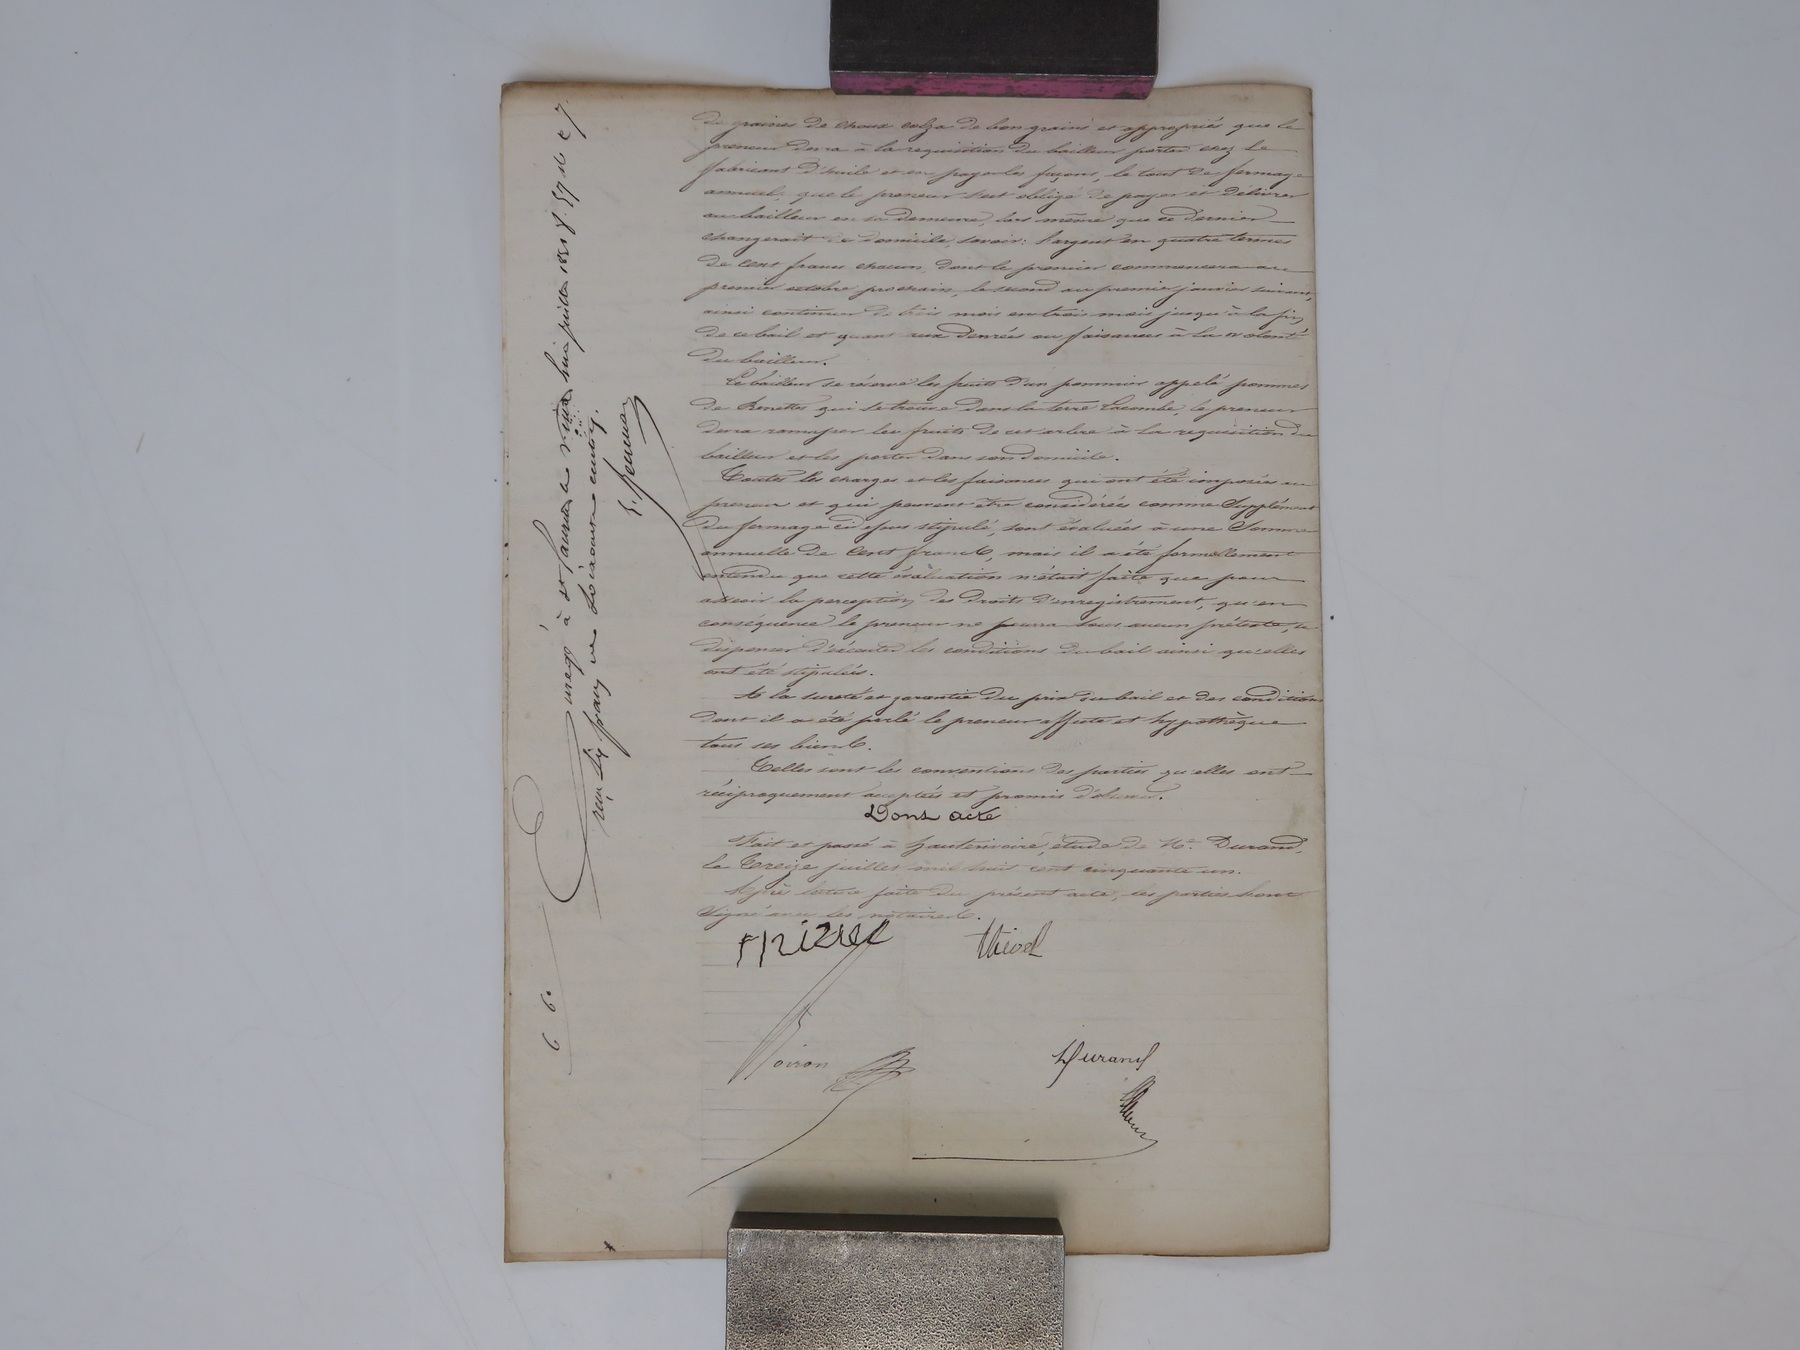 de graines de choux colza de bon grains et appropriés que le
preneur devra à la requisition du bailleur porter chez le
fabricant d'huile et en payer les façons, le tout de fermage
annuel, que le preneur s'est obligé de payer et délivrer
au bailleur en sa demeure, lors même que ce dernier
changerait de domicile, savoir: l'argent en quatre termes
de cent francs chacun, dont le premier commencera au
premier octobre prochain, le second au premier janvier suivant,
ainsi continuer de trois mois en trois mois jusqu'à la fin
de ce bail et quant aux denrées ou faisances à la volonté
du bailleur.
Le bailleur se réserve les fruits d'un pommier appelé pommes
de Renettes qui se trouve dans la terre Lacombe, le preneur
devra ramasser les fruits de cet arbre à la requisition du
bailleur et les porter dans son domicile.
Toutes les charges et les faisances qui ont été imposées au
preneur et qui peuvent être considérées comme Supplément
du fermage ci dessus stipulé, sont évaluées à une Somme
annuelle de Cent francs, mais il a été formellement
entendu que cette évaluation n'était faite que pour
asseoir la perception des droits d'enregistrement, qu'en
conséquence le preneur ne pourra sous aucun prétexte, se
dispenser d'exécuter les conditions du bail ainsi qu'elles
ont été stipulées.
A la sureté et garantie du prix du bail et des conditions
dont il a été parlé le preneur affecte et hypothèque
tous ses biens.
Telles sont les conventions des parties qu'elles ont
réciproquement acceptées et promis d'exécuter.
Dont acte
Fait et passé à hauterivoire, étude de Me. Durand,
le Treize juillet mil huit cent cinquante un.
Après lecture faite du présent acte, les parties l'ont
Signé avec les notaires.
Frizrel Thevel
Voiron Durand
Enregé à St Laurent le huit juillet 1851 fo. 57 Vo C 7.
reçu six francs un décime centimes.
6 60